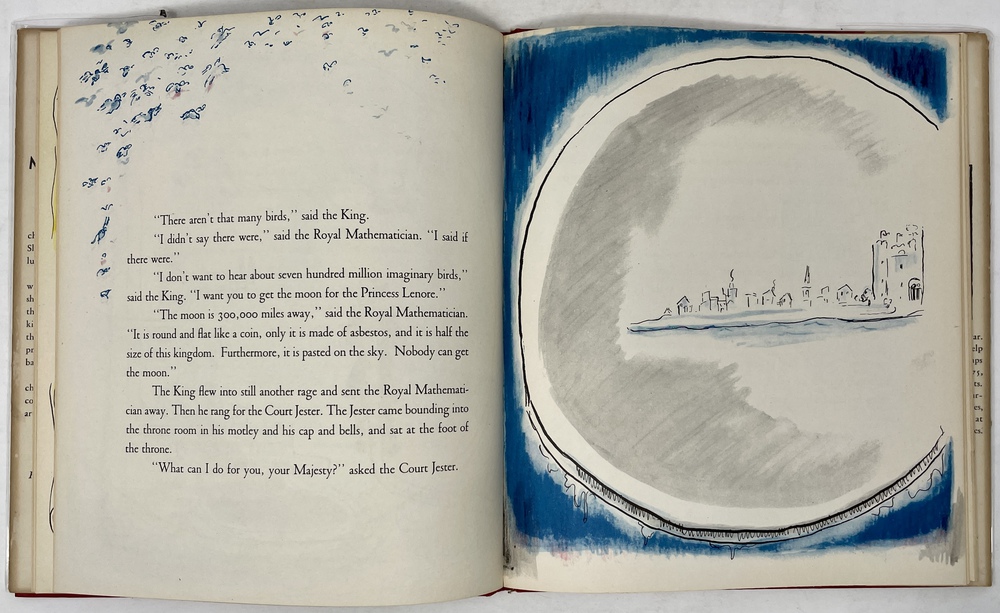 “There aren’t that many birds,” said the King.
“I didn’t say there were,” said the Royal Mathematician. “I said if
there were.”
“I don’t want to hear about seven hundred million imaginary birds,”
said the King. “I want you to get the moon for the Princess Lenore.”
“The moon is 300,000 miles away,” said the Royal Mathematician.
“It is round and flat like a coin, only it is made of asbestos, and it is half the
size of this kingdom. Furthermore, it is pasted on the sky. Nobody can get
the moon.”
The King flew into still another rage and sent the Royal Mathemati-
cian away. Then he rang for the Court Jester. The Jester came bounding into
the throne room in his motley and his cap and bells, and sat at the foot of
the throne.
“What can I do for you, your Majesty?” asked the Court Jester.